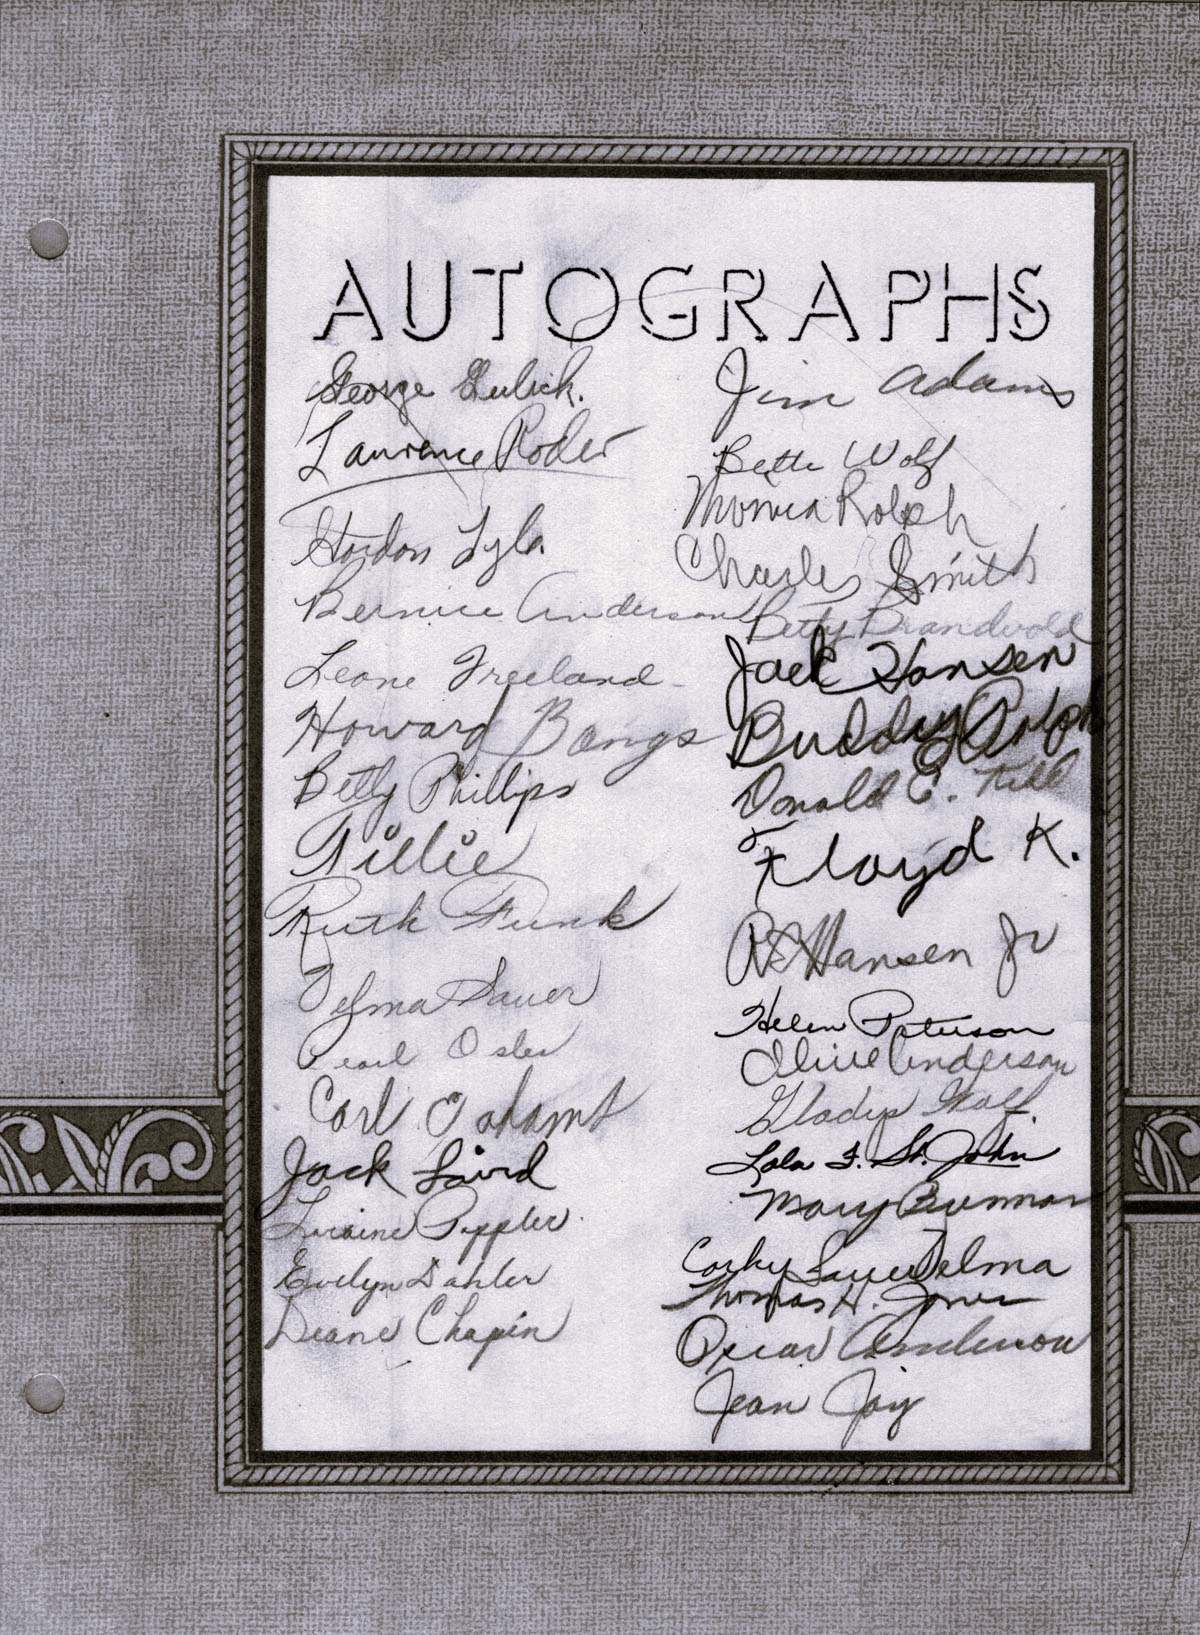 AUTOGRAPHS
George Gulick.
Laurence Roder
Gordon Lyla
Bernice Anderson
Leone Freeland
Howard Bangs
Betty Phillips
Tillie
Ruth Funk
Velma Sauer
Pearl Osler
Carl O Adams
Jack Laird
Loraine Peppler
Evelyn Dahler
Deane Chapin
Jim Adams
Bette Wolf
Monica Rolph
Charles Smith
Betty Brandvold
Jack Hansen
Buddy Rolph
Donald E.
Floyd K.
Hansen Jr
Helen Paterson
Olive Anderson
Gladys Wolf.
Lola F. St. John
Mary
Corky Sauer Delma
Thomas H. Jones
Oscar Anderson
Jean Joy